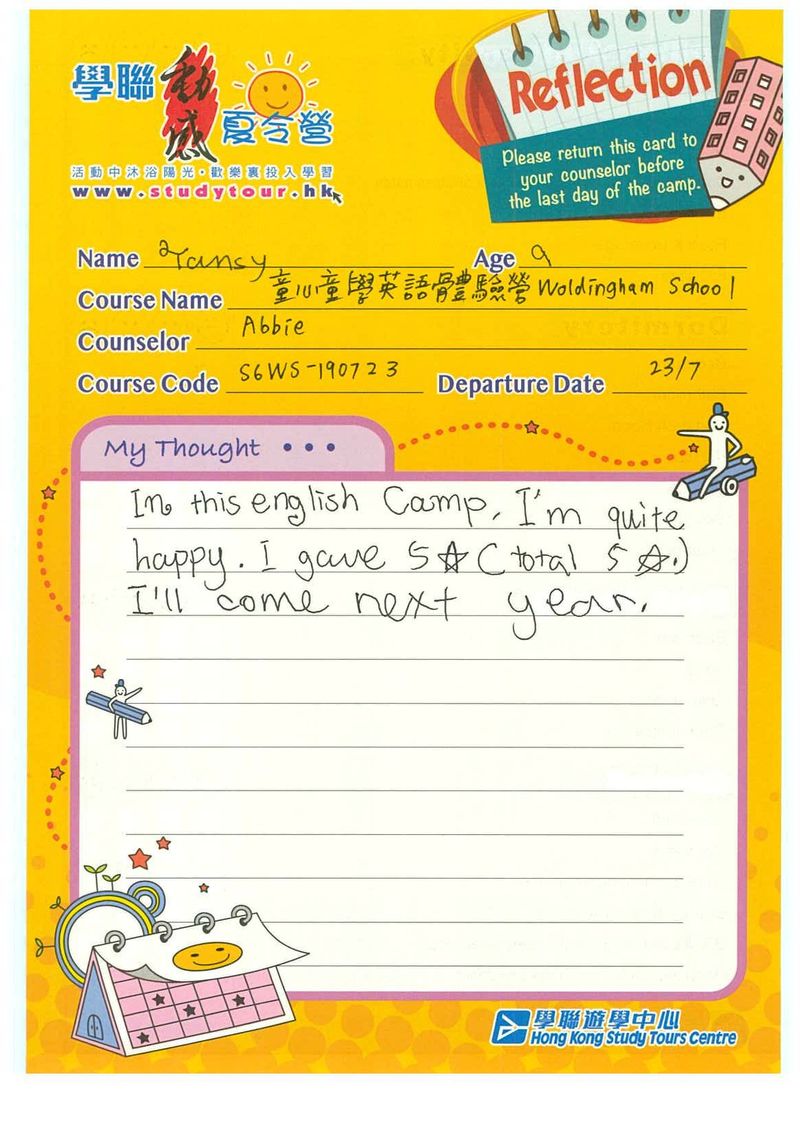 學聯 動感 夏令營
活動中沐浴陽光·歡樂裏投入學習
www.studytour.hk
Reflection
Please return this card to
your counselor before
the last day of the camp.
Name Yansy Age 9
Course Name 童心童學英語體驗營 Woldingham School
Counselor Abbie
Course Code S6WS-190723 Departure Date 23/7
My Thought •••
In this english Camp, I'm quite
happy. I gave 5☆ (total 5 ☆.)
I'll come next year.
學聯遊學中心
Hong Kong Study Tours Centre